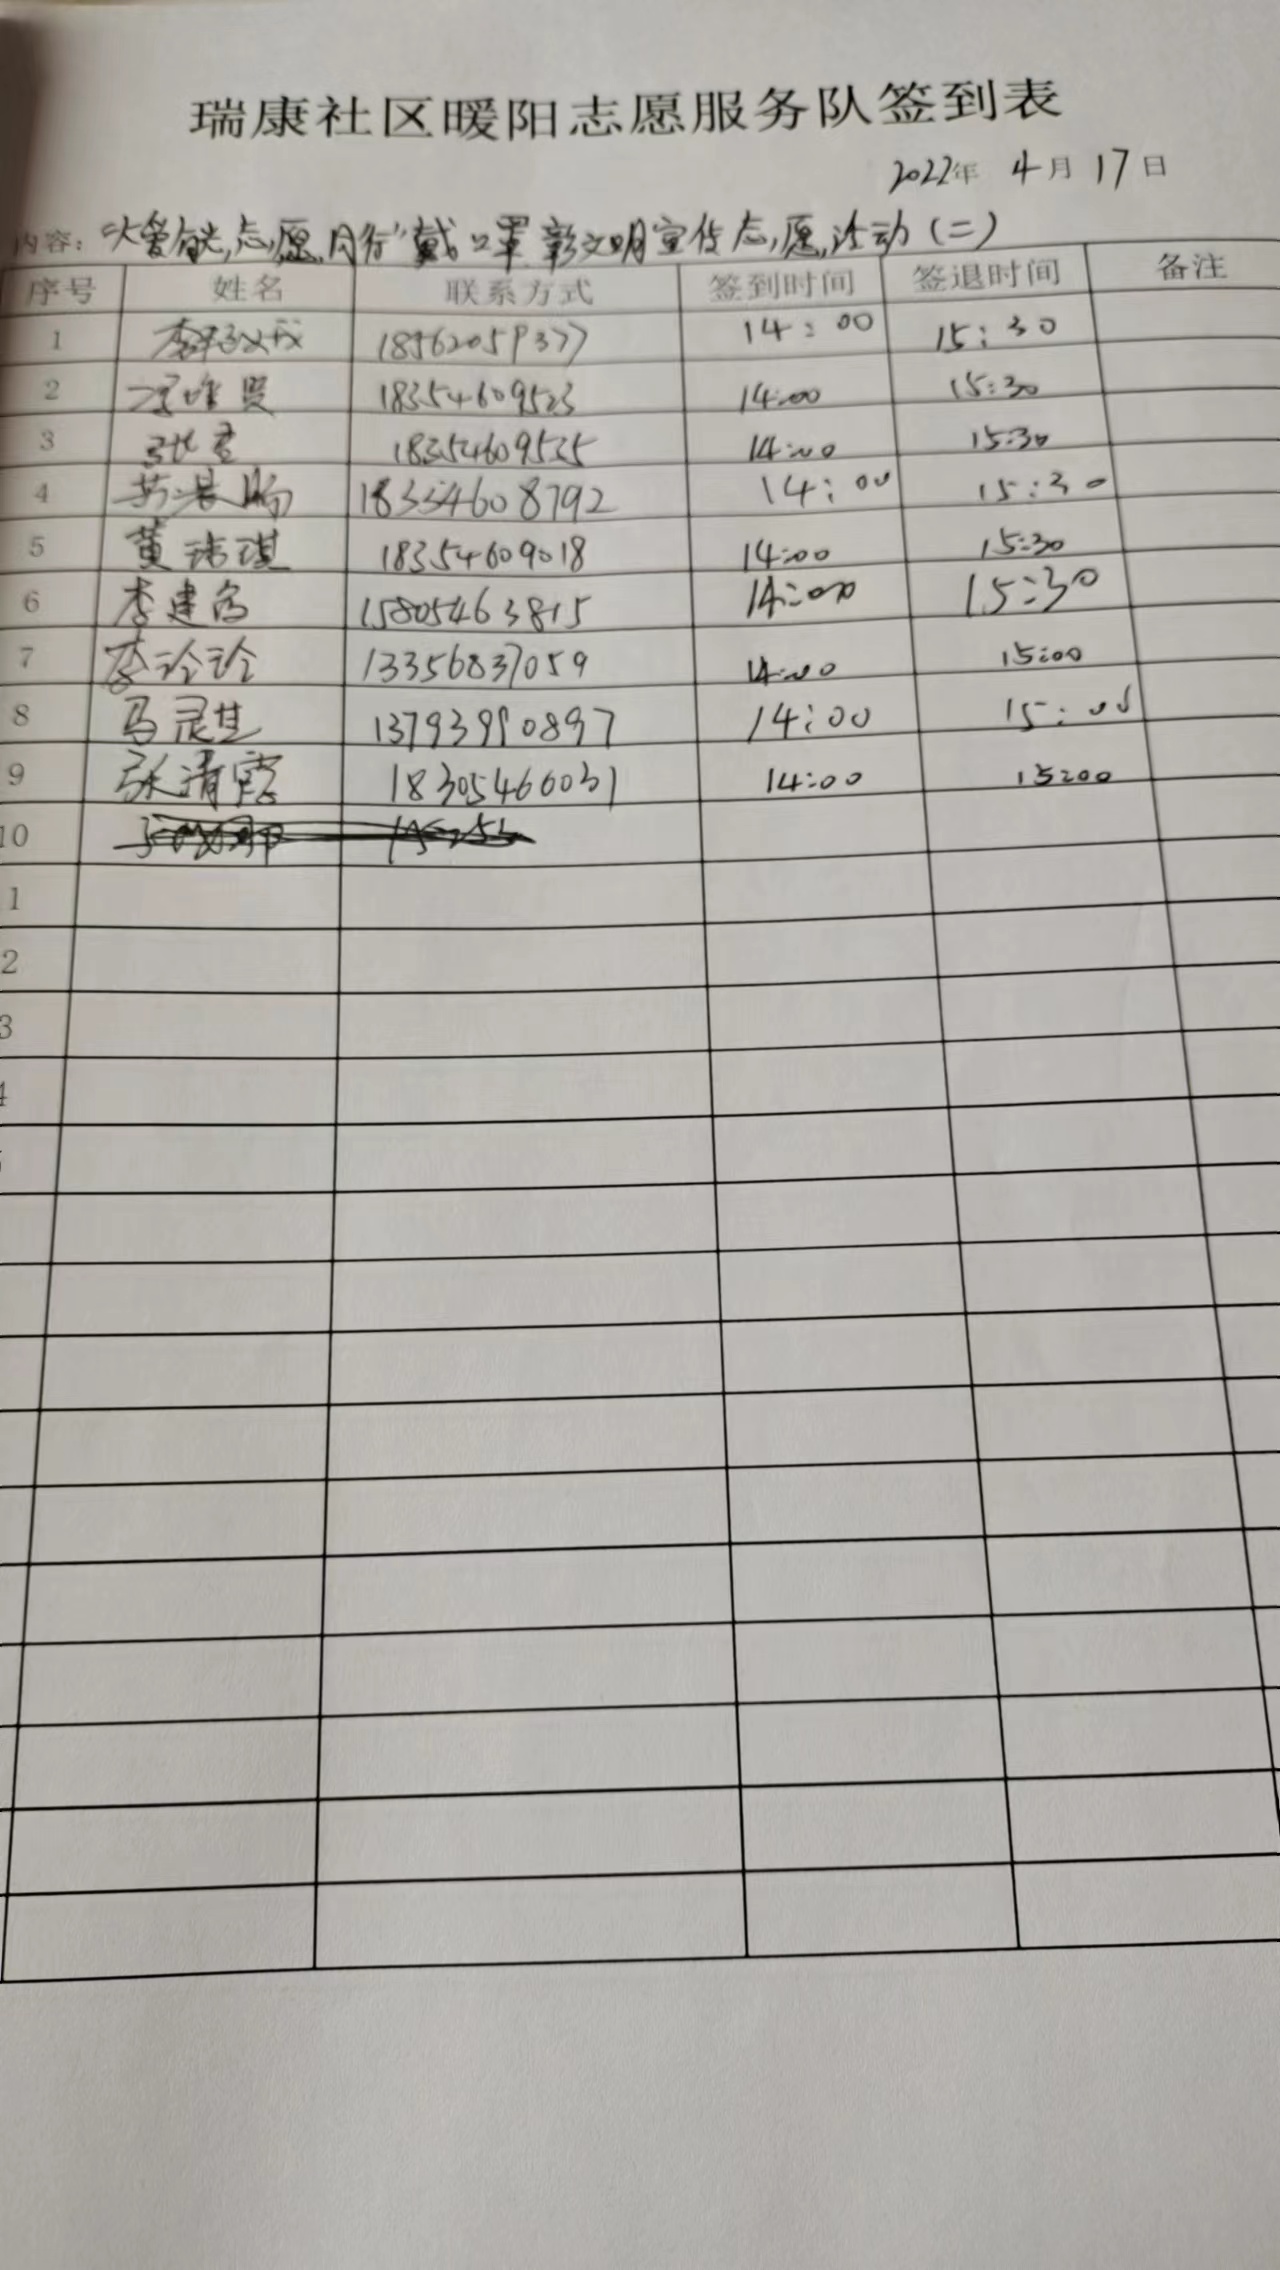 瑞康社区暖阳志愿服务队签到表
2022年 4月 17日
内容：“大爱有光,志愿同行”戴口罩彰文明宣传志愿活动(二)
序号 姓名 联系方式 签到时间 签退时间 备注
1 18562059377 14:00 15:30
2 18354609523 14:00 15:30
3 18354609535 14:00 15:30
4 18354608792 14:00 15:30
5 黄玮琪 18354609018 14:00 15:30
6 李建 15805463815 14:00 15:30
7 李玲玲 13356837059 14:00 15:00
8 马灵芝 13793990897 14:00 15:00
9 张清霞 18305466031 14:00 15:00
10
1
2
3
4